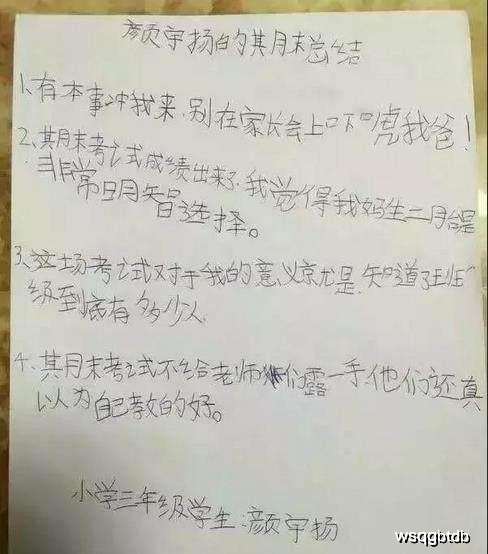 颜宇扬的其月末总结
1、有本事冲我来,别在家长会上吓唬我爸!
2、其月末考试成绩出来了,我觉得我妈生二月台是
非常明智选择。
3、这场考试对于我的意义就是,知道了班
级到底有多少人
4、其月末考试不给老师们露一手,他们还真
以为自己教的好。
小学三年级学生:颜宇扬
wsqgbtdb